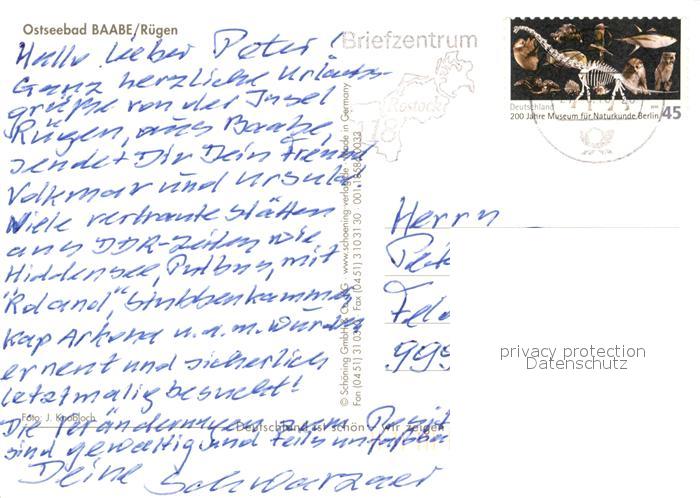 Ostseebad BAABE/Rügen
Hallo lieber Peter!
Ganz herzliche Urlaubs-
grüße von der Insel
Rügen, aus Baabe,
sendet Dir Dein Freund
Volkmar und Ursula.
Viele vertraute Stätten
aus DDR-Zeiten wie
Hiddensee, Putbus, mit
"Roland", Stubbenkammer
Kap Arkona u.a.m. wurden
erneut und sicherlich
letztmalig besucht!
Die Veränderungen
sind gewaltig und teils unfassbar
Deine Schwarzaer
Foto: J. Knobloch
Deutschland ist schön - wir zeigen
© Schöning GmbH & Co. KG · www.schoening-verlag.de · Made in Germany
Fax (04 51) 3 10 31 30
Briefzentrum
18
Rostock
Deutschland
200 Jahre Museum für Naturkunde Berlin
45
Herrn
Pet
99
privacy protection
Datenschutz